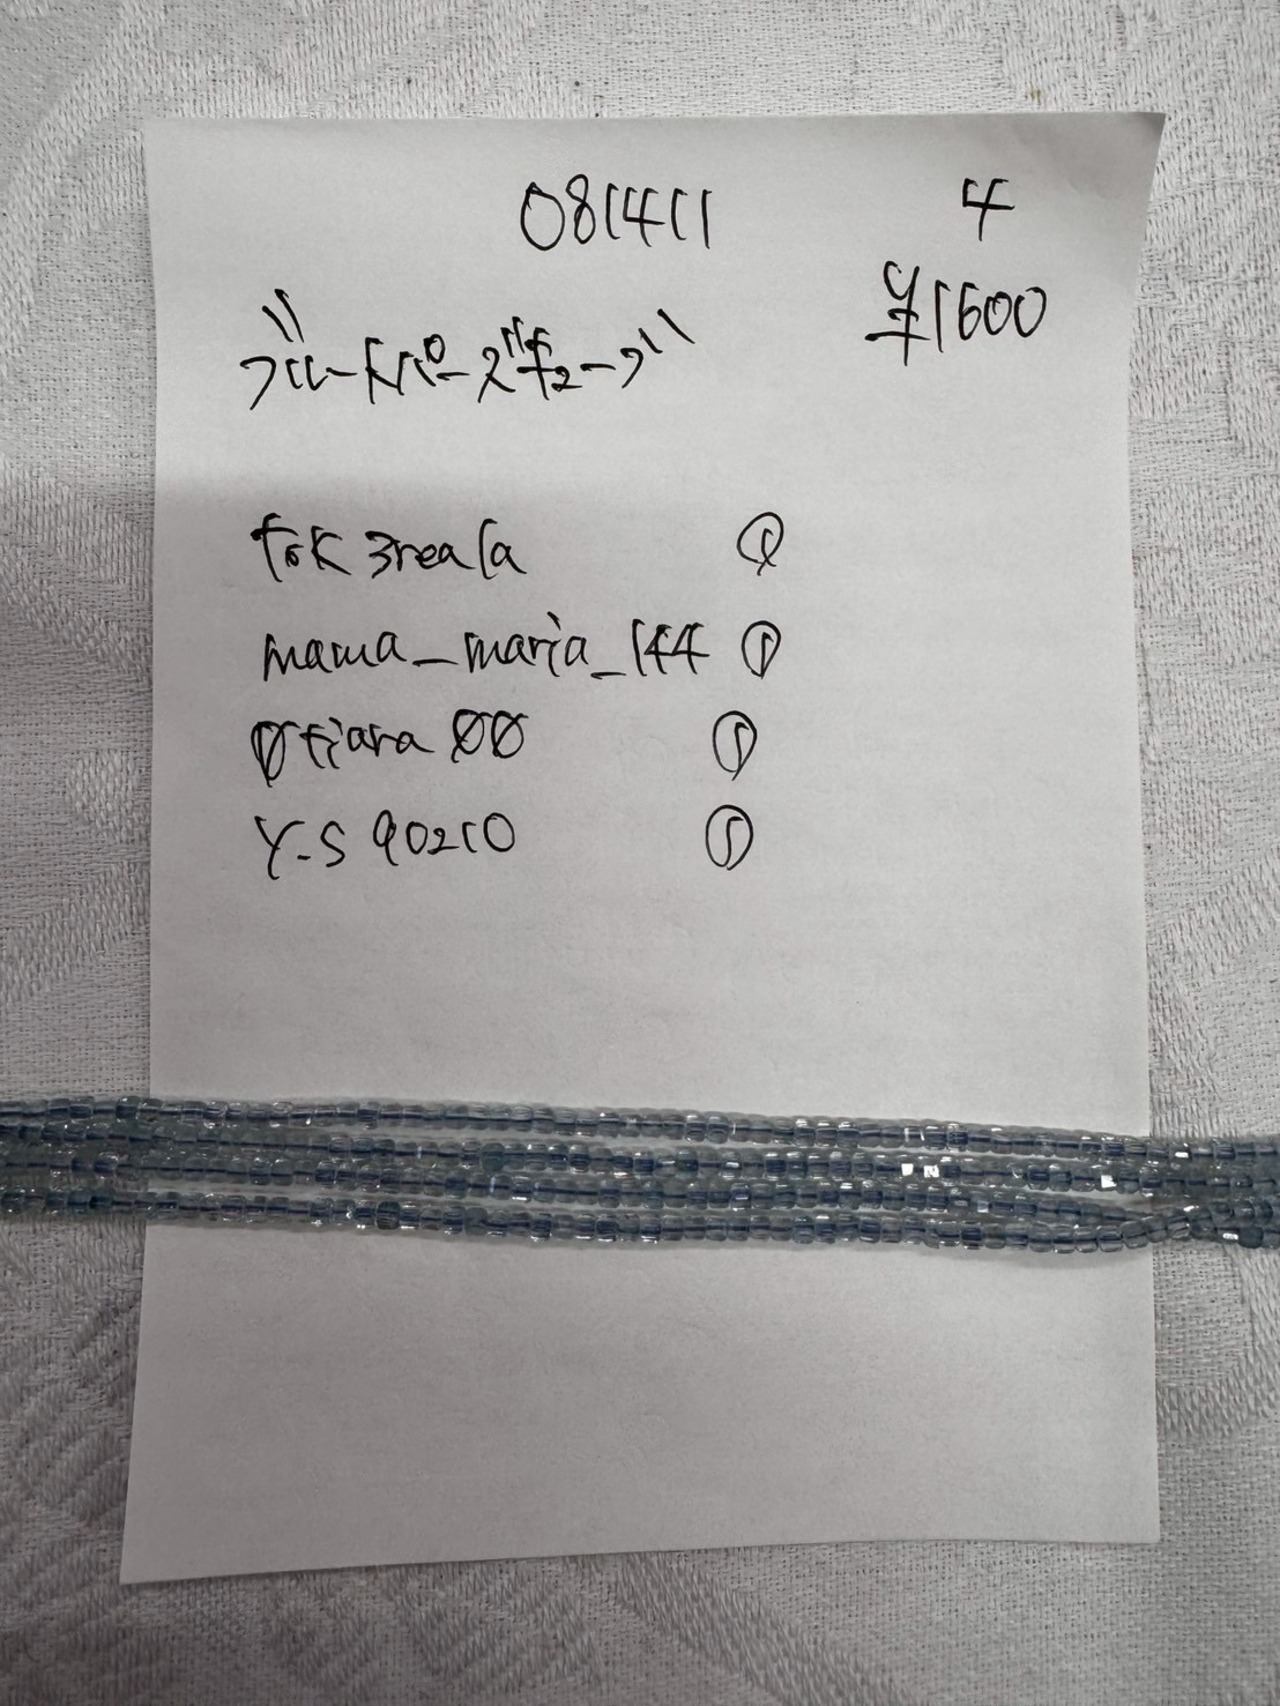 081411 4
¥1600
ブルートパーズ チューブ
tok3reala ①
mama_maria_144 ①
0tiara00 ①
Y-S90210 ①